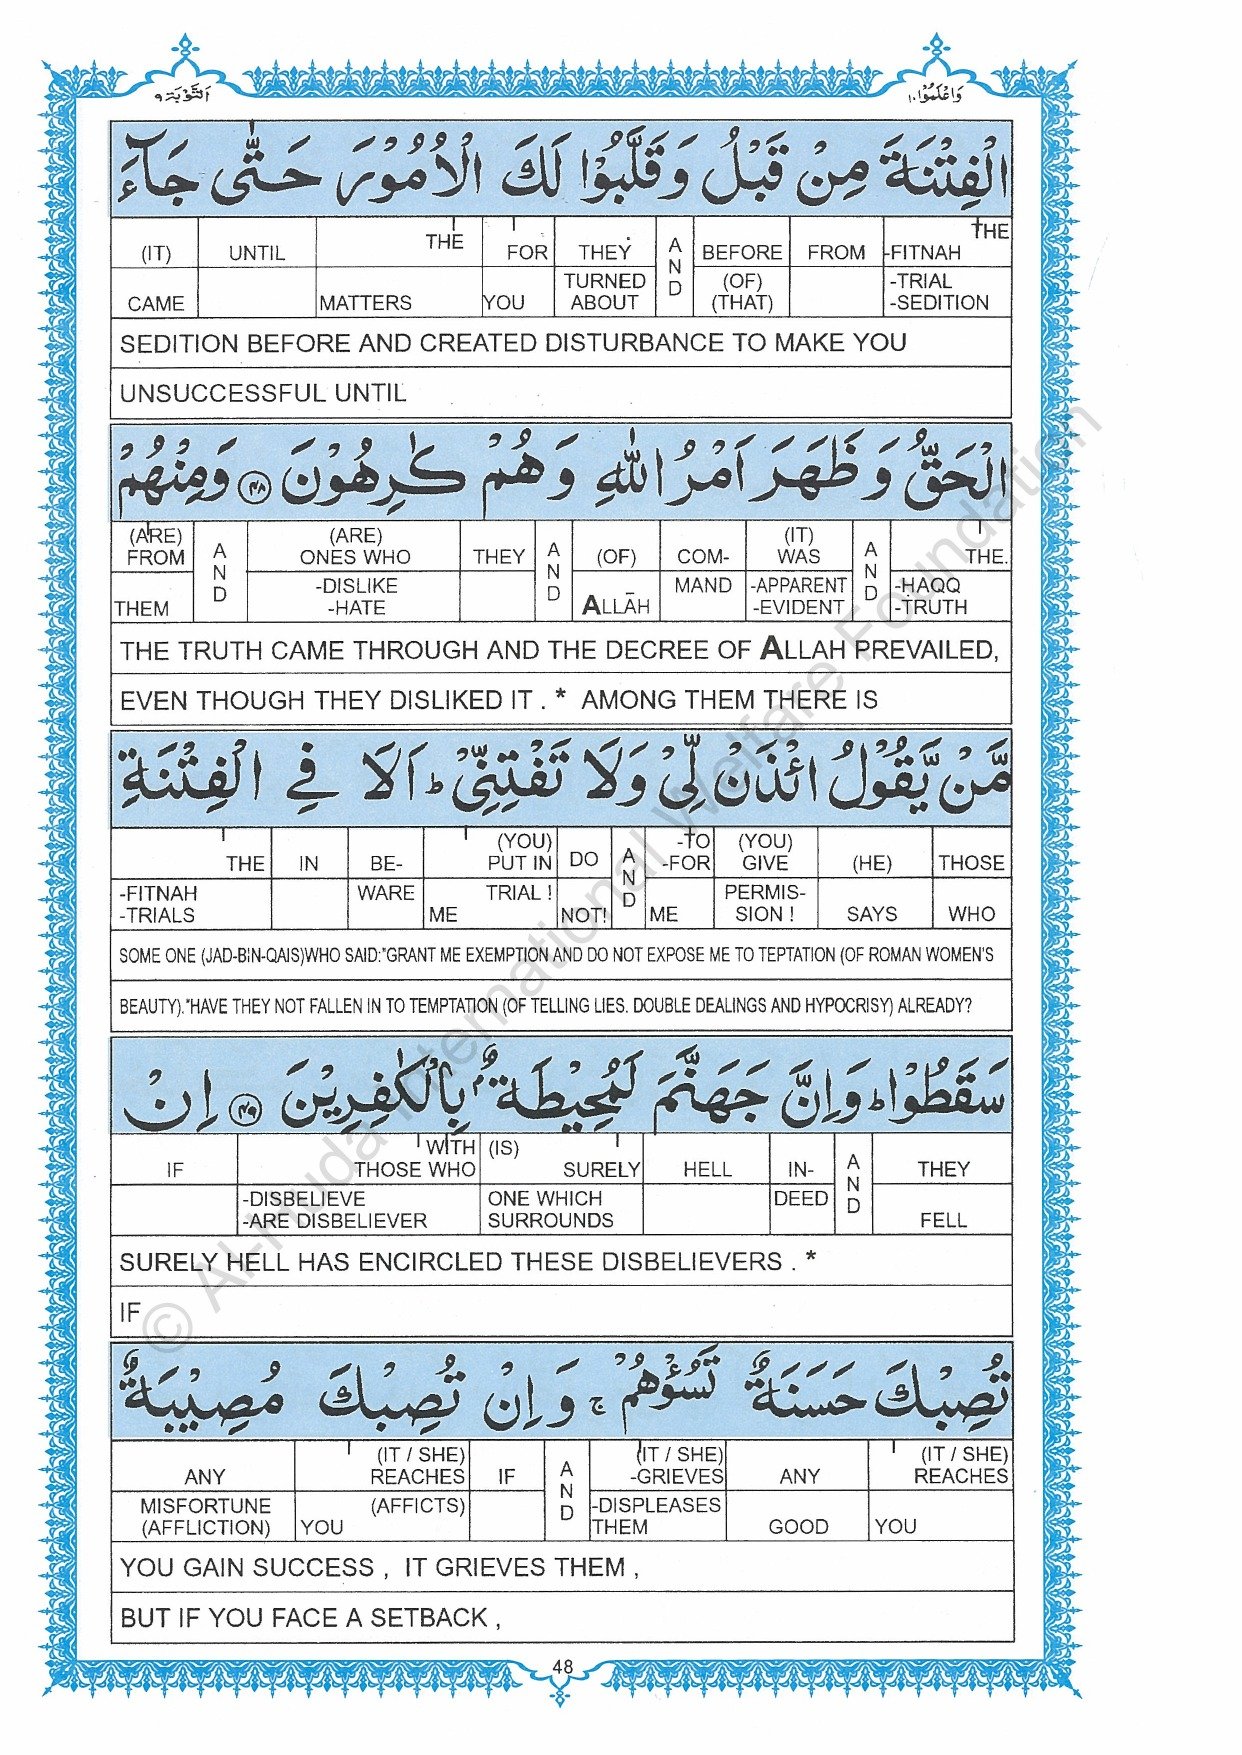 اَلتَّوْبَة ٩
وَاعْلَمُوْا ١٠
الْفِتْنَةَ مِنْ قَبْلُ وَقَلَّبُوْا لَكَ الْاُمُوْرَ حَتّٰى جَآءَ
THE -FITNAH -TRIAL -SEDITION | FROM | BEFORE (OF) (THAT) | AND | THEY TURNED ABOUT | FOR YOU | THE MATTERS | UNTIL | (IT) CAME
SEDITION BEFORE AND CREATED DISTURBANCE TO MAKE YOU
UNSUCCESSFUL UNTIL
الْحَقُّ وَظَهَرَ اَمْرُ اللّٰهِ وَهُمْ كٰرِهُوْنَ ﴿٤٨﴾ وَمِنْهُمْ
THE. -HAQQ -TRUTH | AND | (IT) WAS -APPARENT -EVIDENT | COM- MAND | (OF) ALLĀH | AND | THEY | (ARE) ONES WHO -DISLIKE -HATE | AND | (ARE) FROM THEM
THE TRUTH CAME THROUGH AND THE DECREE OF ALLAH PREVAILED,
EVEN THOUGH THEY DISLIKED IT . * AMONG THEM THERE IS
مَّنْ يَّقُوْلُ ائْذَنْ لِّيْ وَلَا تَفْتِنِّيْ ؕ اَلَا فِي الْفِتْنَةِ
THOSE WHO | (HE) SAYS | (YOU) GIVE PERMIS- SION ! | -TO -FOR ME | AND | DO NOT! | (YOU) PUT IN TRIAL ! ME | BE- WARE | IN | THE -FITNAH -TRIALS
SOME ONE (JAD-BIN-QAIS)WHO SAID:"GRANT ME EXEMPTION AND DO NOT EXPOSE ME TO TEPTATION (OF ROMAN WOMEN'S
BEAUTY)."HAVE THEY NOT FALLEN IN TO TEMPTATION (OF TELLING LIES. DOUBLE DEALINGS AND HYPOCRISY) ALREADY?
سَقَطُوْا ؕ وَاِنَّ جَهَنَّمَ لَمُحِيْطَةٌۢ بِالْكٰفِرِيْنَ ﴿٤٩﴾ اِنْ
THEY FELL | AND | IN- DEED | HELL | (IS) SURELY ONE WHICH SURROUNDS | WITH THOSE WHO -DISBELIEVE -ARE DISBELIEVER | IF
SURELY HELL HAS ENCIRCLED THESE DISBELIEVERS . *
IF
تُصِبْكَ حَسَنَةٌ تَسُؤْهُمْ ۚ وَاِنْ تُصِبْكَ مُصِيْبَةٌ
(IT / SHE) REACHES YOU | ANY GOOD | (IT / SHE) -GRIEVES -DISPLEASES THEM | AND | IF | (IT / SHE) REACHES (AFFICTS) YOU | ANY MISFORTUNE (AFFLICTION)
YOU GAIN SUCCESS , IT GRIEVES THEM ,
BUT IF YOU FACE A SETBACK ,
48
© Al-Huda International Welfare Foundation